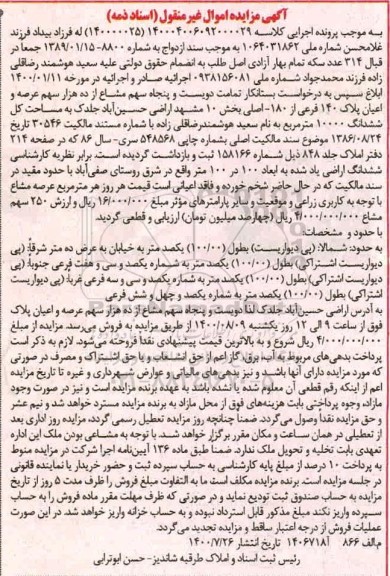 آگهی مزایده اموال غیرمنقول (اسناد ذمه)
به موجب پرونده اجرایی کلاسه ۱۴۰۰۰۴۰۰۶۰۹۲۰۰۰۰۲۹ (۱۴۰۰۰۰۰۲۵) له فرزاد بیداد فرزند
غلامحسن شماره ملی ۱۰۶۴۰۳۱۸۶۲ به موجب سند ازدواج به شماره ۸۸۰۰-۱۳۸۹/۰۱/۱۵ جمعا در
قبال ۳۱۴ عدد سکه تمام بهار آزادی اصل طلب به انضمام حقوق دولتی علیه سعید هوشمند رضاقلی
زاده فرزند محمدجواد شماره ملی ۰۹۳۸۱۵۶۰۸۱ اجرائیه صادر و اجرائیه در مورخه ۱۴۰۰/۰۱/۱۱
ابلاغ سپس به درخواست بستانکار تمامت دویست و پنجاه سهم مشاع از ده هزار سهم عرصه و
اعیان پلاک ۱۴۰ فرعی از ۱۸۰-اصلی بخش ۱۰ مشهد اراضی حسین‌آباد جلدک به مساحت کل
ششدانگ ۱۰۰۰۰ مترمربع به نام سعید هوشمندرضاقلی زاده با شماره مستند مالکیت ۳۰۵۴۶ تاریخ
۱۳۸۶/۰۸/۲۴ موضوع سند مالکیت اصلی بشماره چاپی ۵۴۸۵۶۸ سری- سال ۸۶ که در صفحه ۲۱۴
دفتر املاک جلد ۸۴۸ ذیل شماره ۱۵۸۱۶۶ ثبت و بازداشت گردیده است. برابر نظریه کارشناسی
ششدانگ اراضی یاد شده به ابعاد ۱۰۰ در ۱۰۰ متر واقع در شرق روستای صفی‌آباد با حدود مقید در
سند مالکیت که در حال حاضر شخم خورده و فاقد اعیانی است قیمت هر روز هر مترمربع عرصه مشاع
با توجه به کاربری زراعی و موقعیت و سایر پارامترهای مؤثر مبلغ ۱۶/۰۰۰/۰۰۰ ریال و ارزش ۲۵۰ سهم
مشاع ۴/۰۰۰/۰۰۰/۰۰۰ ریال (چهارصد میلیون تومان) ارزیابی و قطعی گردید.
با حدود و مشخصات:
به حدود: شمالا: (پی دیواریست) بطول (۱۰۰/۰۰) یکصد متر به خیابان به عرض ده متر شرقاً: (پی
دیواریست اشتراکی) بطول (۱۰۰/۰۰) یکصد متر به شماره یکصد و سی و هفت فرعی جنوبا: (پی
دیواریست اشتراکی) بطول (۱۰۰/۰۰) یکصد متر به شماره یکصد و سی و سه فرعی غربا: (پی دیواریست
اشتراکی) بطول (۱۰۰/۰۰) یکصد متر به شماره یکصد و چهل و شش فرعی
به آدرس اراضی حسین‌آباد جلدک لذا دویست و پنجاه سهم مشاع از ده هزار سهم عرصه و اعیان پلاک
فوق از ساعت ۹ الی ۱۲ روز یکشنبه ۱۴۰۰/۰۸/۰۹ از طریق مزایده به فروش می‌رسد. مزایده از مبلغ
۴/۰۰۰/۰۰۰/۰۰۰ ریال شروع و به بالاترین قیمت پیشنهادی نقدا فروخته می‌شود. لازم به ذکر است
پرداخت بدهی‌های مربوط به آب، برق، گاز اعم از حق انشعاب و یا حق اشتراک و مصرف در صورتی
که مورد مزایده دارای آنها باشد و نیز بدهی‌های مالیاتی و عوارض شهرداری و غیره تا تاریخ مزایده
اعم از اینکه رقم قطعی آن معلوم شده یا نشده باشد به عهده برنده مزایده است و نیز در صورت وجود
مازاد، وجوه پرداختی بابت هزینه‌های فوق از محل مازاد به برنده مزایده مسترد خواهد شد و نیم عشر
و حق مزایده نقدا وصول می‌گردد. ضمنا چنانچه روز مزایده تعطیل رسمی گردد، مزایده روز اداری بعد
از تعطیلی در همان ساعت و مکان مقرر برگزار خواهد شد. با توجه به مشاعی بودن ملک این اداره
تعهدی بابت تخلیه و تحویل ملک ندارد. ضمنا طبق ماده ۱۳۶ آیین‌نامه اجرا شرکت در مزایده منوط
به پرداخت ۱۰ درصد از مبلغ پایه کارشناسی به حساب سپرده ثبت و حضور خریدار یا نماینده قانونی
در جلسه مزایده است. برنده مزایده مکلف است ما به التفاوت مبلغ فروش را ظرف مدت ۵ روز از تاریخ
مزایده به حساب صندوق ثبت تودیع نماید و در صورتی که ظرف مهلت مقرر مانده فروش را به حساب
سپرده واریز نکند مبلغ مذکور قابل استرداد نبوده و به حساب خزانه واریز خواهد شد. در این صورت
عملیات فروش از درجه اعتبار ساقط و مزایده تجدید می‌گردد.
م‌الف ۸۶۶ آ۱۴۰۶۷۱۸ تاریخ انتشار ۱۴۰۰/۷/۲۶
رئیس ثبت اسناد و املاک طرقبه شاندیز- حسن ابوترابی